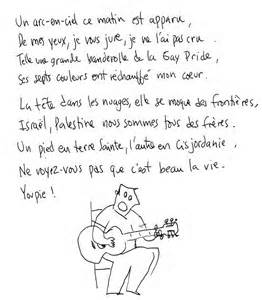 Un arc-en-ciel ce matin est apparu,
De mes yeux, je vous jure, je ne l'ai pas cru.
Telle une grande banderolle de la Gay Pride,
Ses septs couleurs ont réchauffé mon cœur.
La tête dans les nuages, elle se moque des frontières,
Israël, Palestine nous sommes tous des frères.
Un pied en terre Sainte, l'autre en Cisjordanie,
Ne voyez-vous pas que c'est beau la vie.
Youpie !